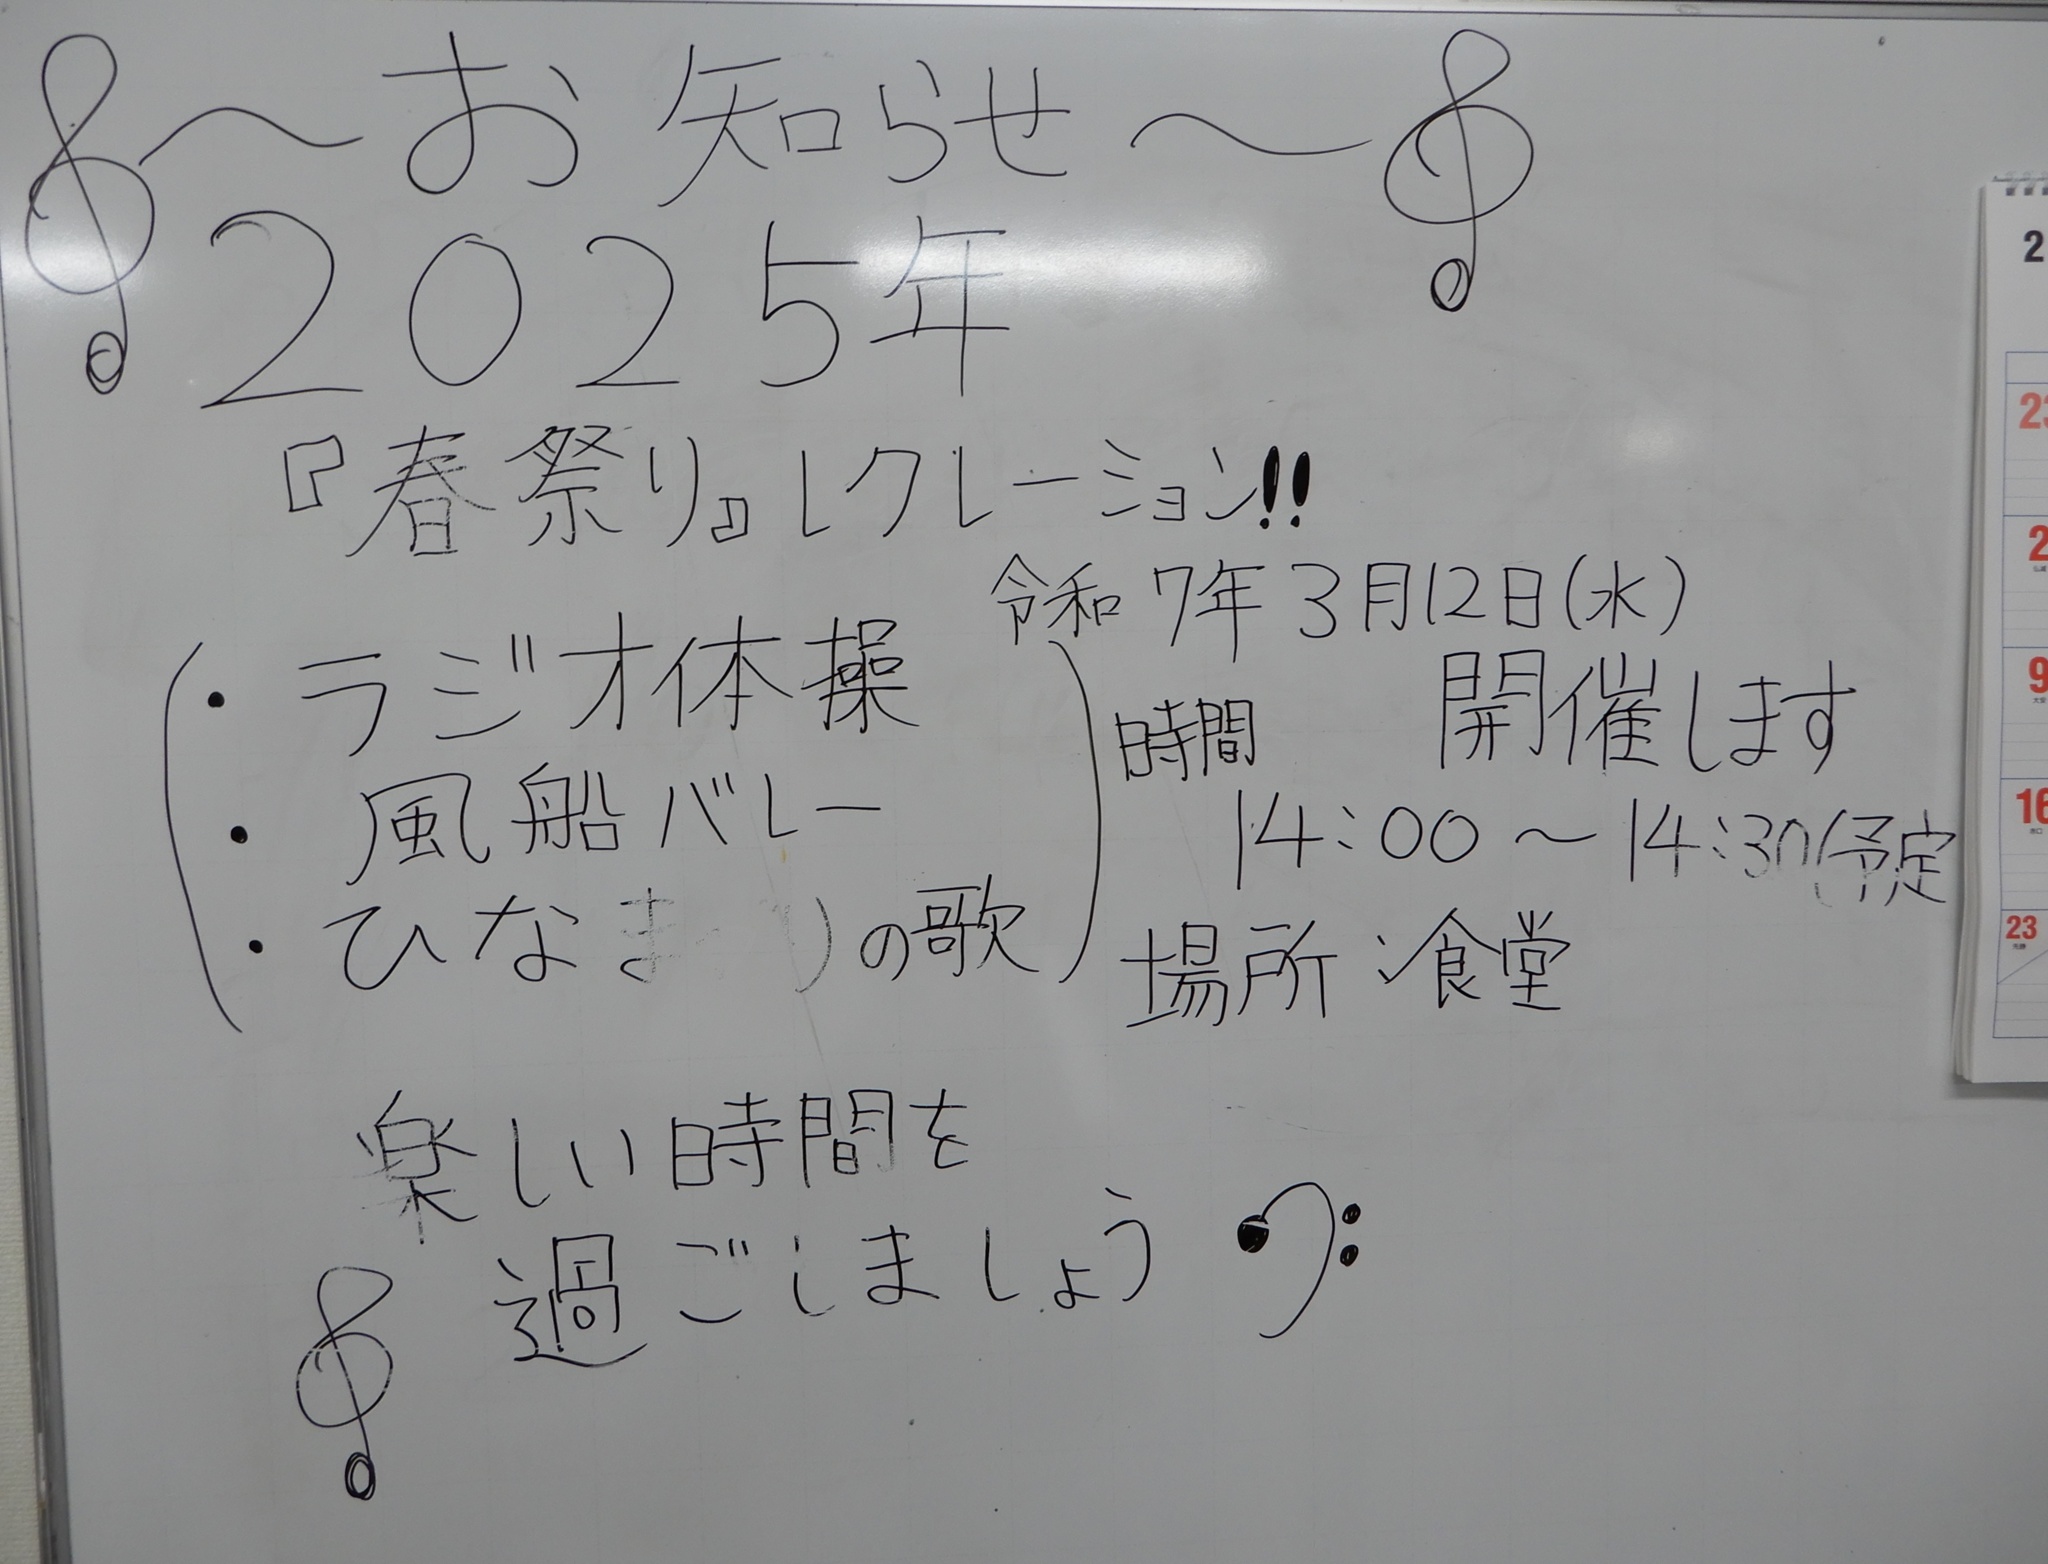 ～お知らせ～
2025年
『春祭り』レクレーション!!
令和7年3月12日(水)
開催します
・ラジオ体操
・風船バレー
・ひなま りの歌
時間
14:00～14:30(予定
場所:食堂
楽しい時間を
過ごしましょう
2
23
2
9
16
23